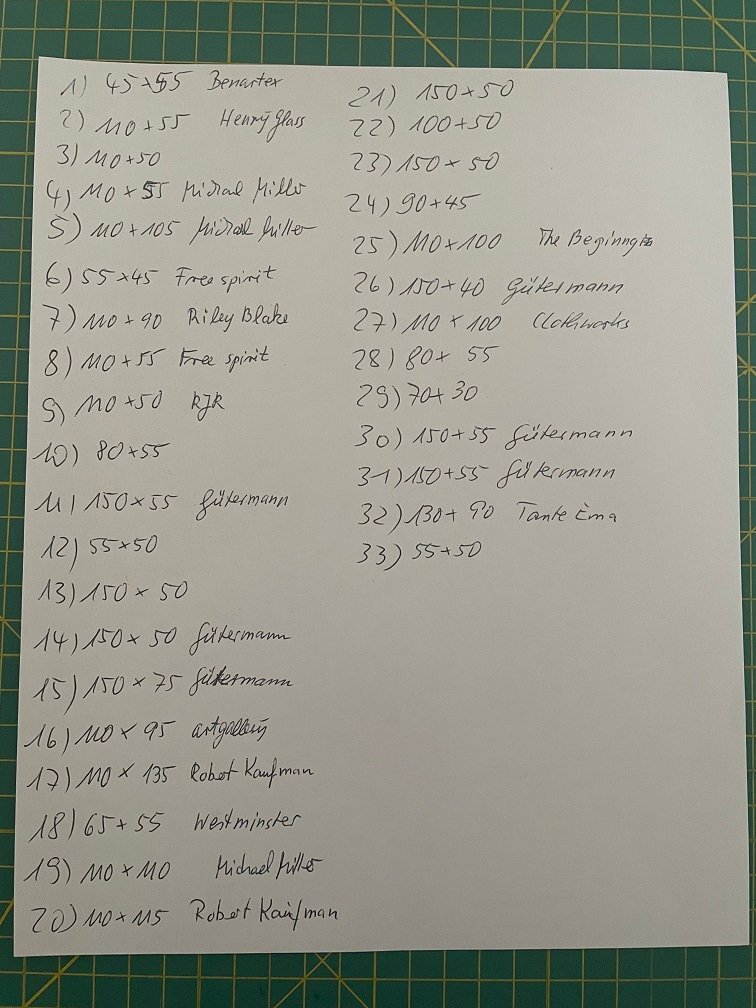 1) 45x55 Benartex
2) 110x55 Henry Glass
3) 110x50
4) 110x55 Michael Miller
5) 110x105 Michael Miller
6) 55x45 Free spirit
7) 110x90 Riley Blake
8) 110x55 Free spirit
9) 110x50 RJR
10) 80x55
11) 150x55 Gütermann
12) 55x50
13) 150x50
14) 150x50 Gütermann
15) 150x75 Gütermann
16) 110x95 artgallery
17) 110x135 Robert Kaufman
18) 65x55 Westminster
19) 110x110 Michael Miller
20) 110x115 Robert Kaufman
21) 150x50
22) 100x50
23) 150x50
24) 90x45
25) 110x100 The Beginngs
26) 150x40 Gütermann
27) 110x100 Clothworks
28) 80x55
29) 70x30
30) 150x55 Gütermann
31) 150x55 Gütermann
32) 130x90 Tante Ema
33) 55x50